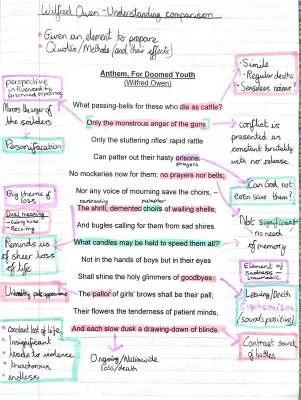 Wilfred Owen - Understanding comparison
• Given an element to prepare
• Quotes/Methods (and their effects)
Anthem, For Doomed Youth
(Wilfred Owen)
• Simile
• Regular deaths
• Senseless raisins?
perspective
influenced by
firsthand experience
Mirrors the anger of
the soldiers
Personification
What passing-bells for these who die as cattle?
Only the monstrous anger of the guns.
Only the stuttering rifles' rapid rattle
Can patter out their hasty orisons.
prayers
conflict is
presented as
constant brutality
with no release
No mockeries now for them; no prayers nor bells;
Nor any voice of mourning save the choirs, –
contrasting metaphor
The shrill, demented choirs of wailing shells;
And bugles calling for them from sad shires.
Can God not
even save them?
Not significant
no need
of memory
Big theme of
loss
Dual meaning
Reminds us
of sheer loss
of life
What candles may be held to speed them all?
Not in the hands of boys but in their eyes
Shall shine the holy glimmers of goodbyes.
The pallor of girls' brows shall be their pall;
Their flowers the tenderness of patient minds,
And each slow dusk a drawing-down of blinds.
Element of
sadness
traumatic
Leaving/Death
Euphemism
(sounds positive)
Contrast sound
of battles
Unhealthy pale appearance
• constant lost of life
• Insignificant
• leads to violence
• endless
Ongoing/Nationwide
loss/death